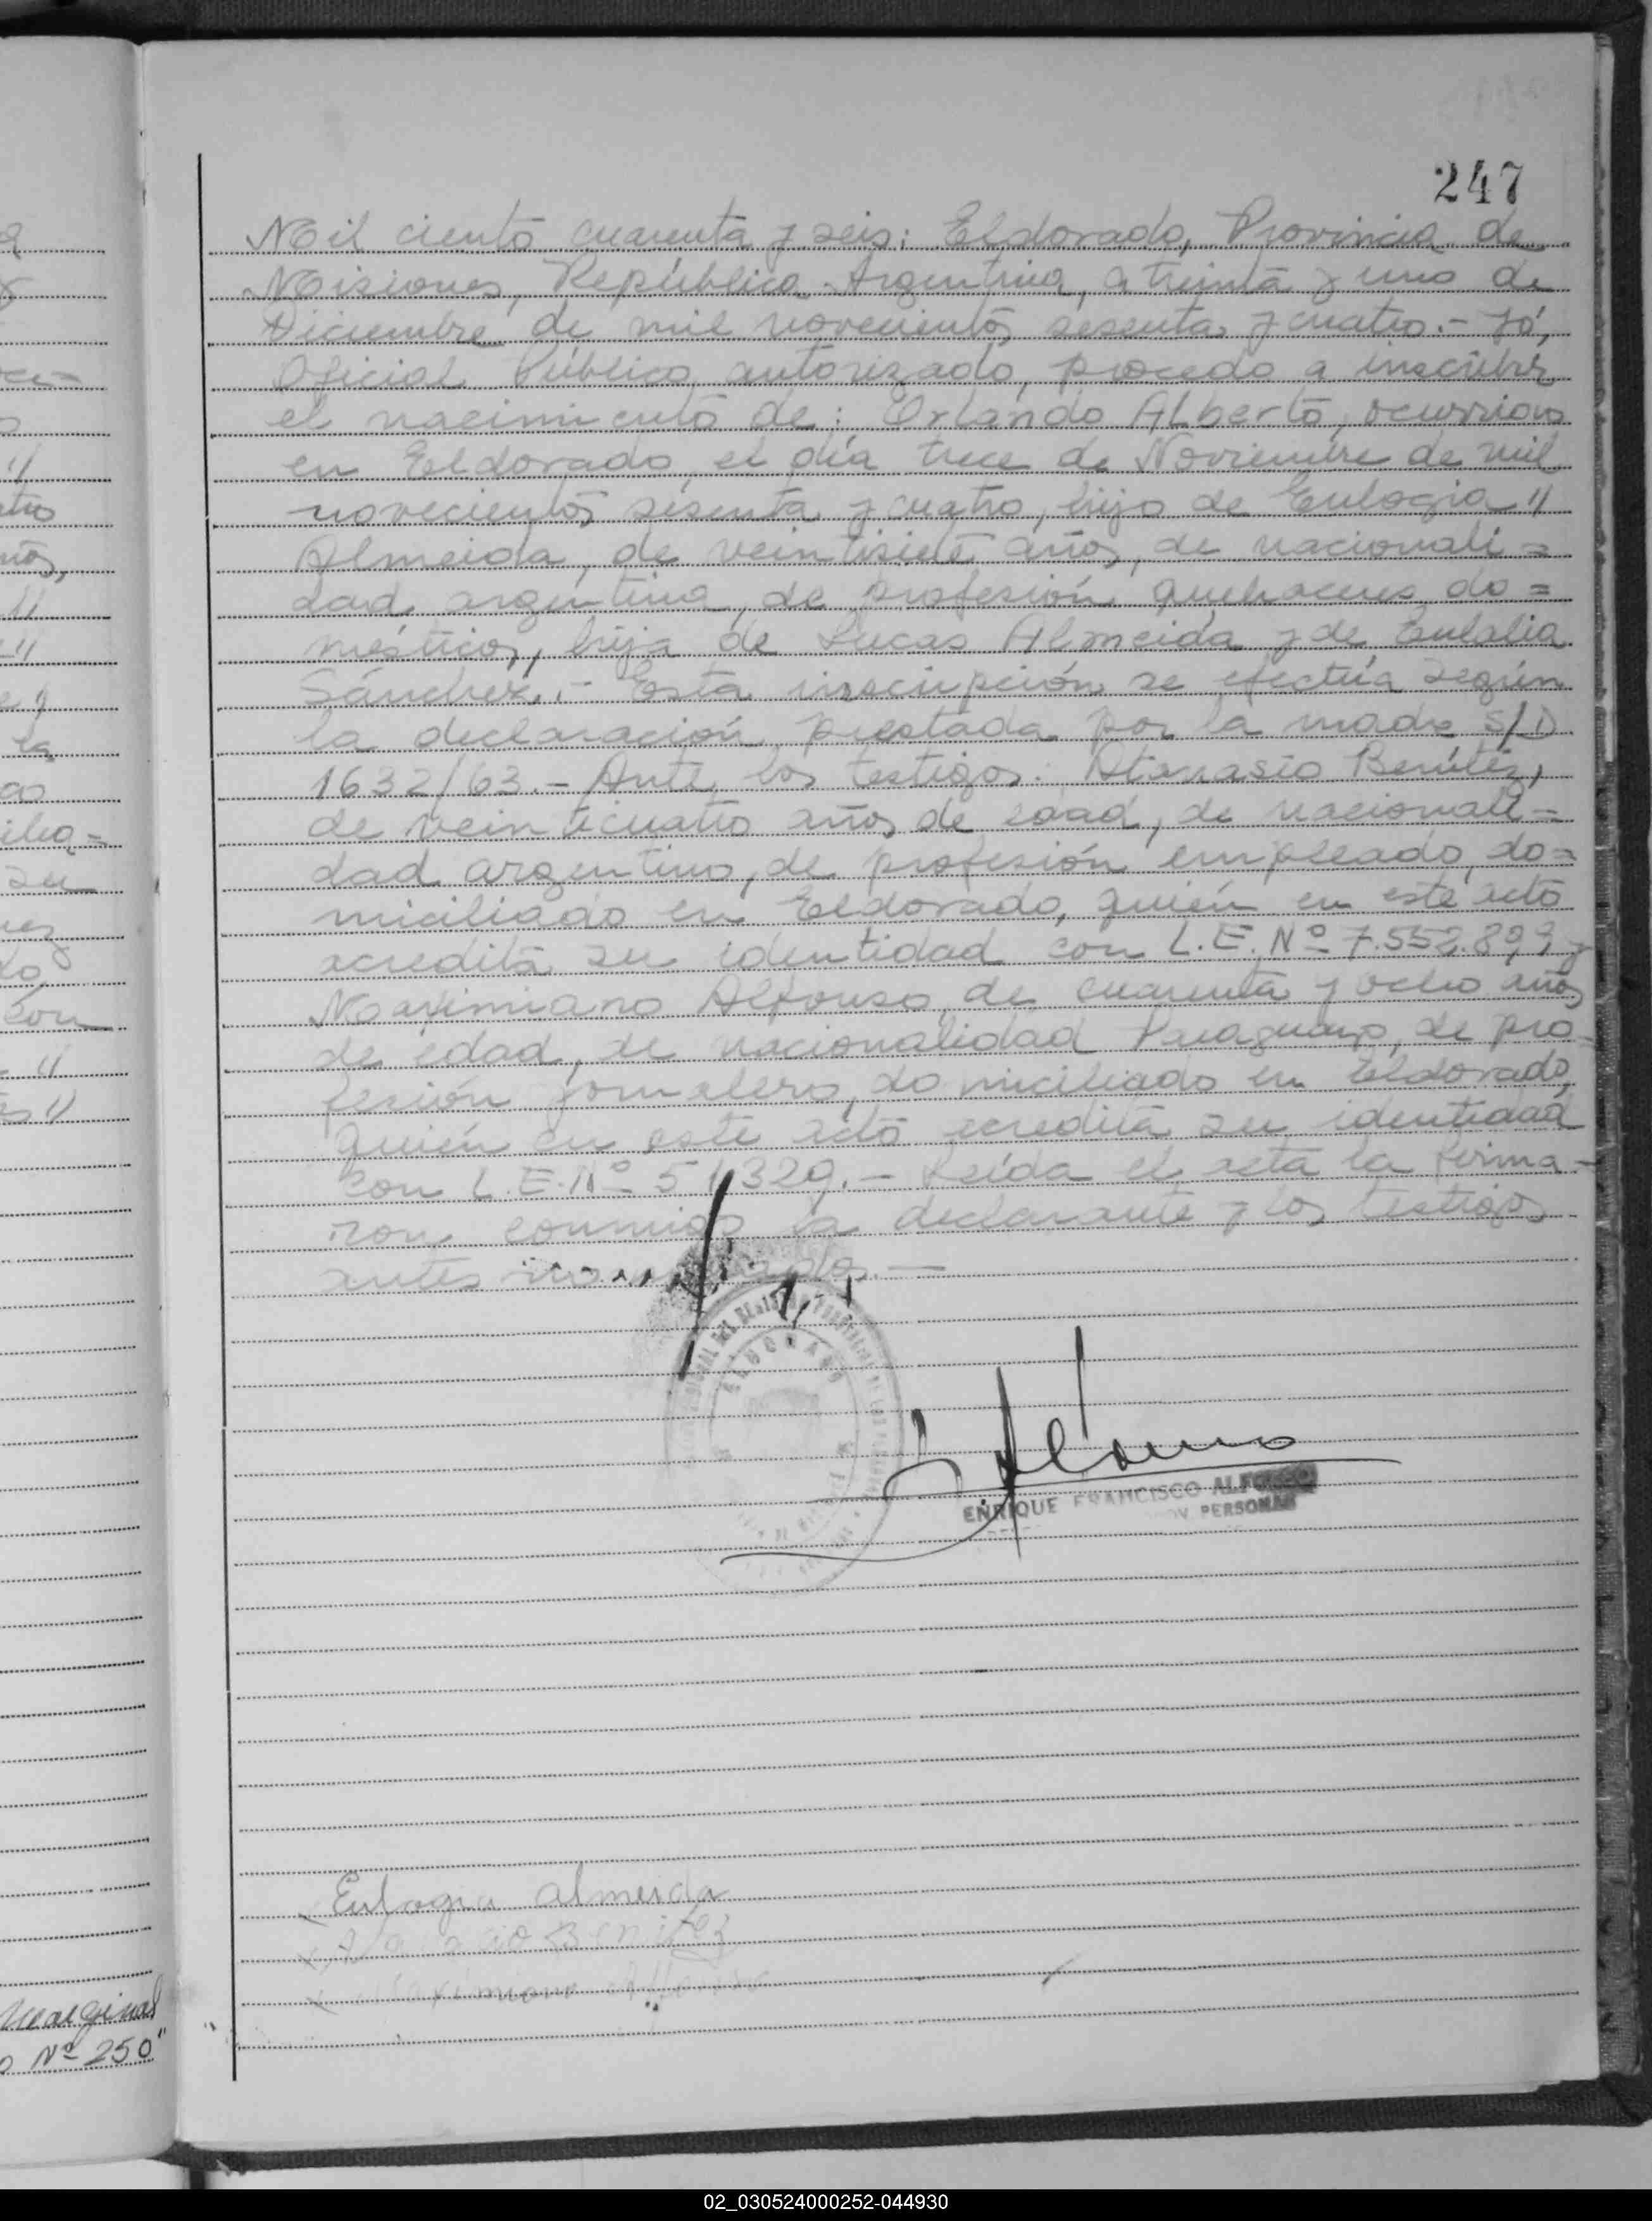 247
Mil ciento cuarenta y seis: Eldorado, Provincia de
Misiones, República Argentina, a treinta y uno de
Diciembre de mil novecientos sesenta y cuatro.- Yó,
Oficial Público autorizado, procedo a inscribir
el nacimiento de: Orlando Alberto, ocurrido
en Eldorado, el día trece de Noviembre de mil
novecientos sesenta y cuatro, hijo de Eulogia "
Almeida, de veintisiete años, de nacionali=
dad argentina, de profesión quehaceres do=
mésticos, hija de Lucas Almeida y de Eulalia
Sánchez.- Esta inscripción se efectúa según
la declaración prestada por la madre S/D
1632/63.- Ante los testigos: Atanasio Benítez,
de veinticuatro años de edad, de nacionali=
dad argentino, de profesión empleado, do=
miciliado en Eldorado, quién en este acto
acredita su identidad con L.E. Nº 7.552.899 y
Maximiano Alfonso, de cuarenta y ocho años
de edad, de nacionalidad Paraguayo, de pro=
fesión jornalero, domiciliado en Eldorado,
quién en este acto acredita su identidad
con L.E. Nº 51329.- Leída el acta la firma=
ron conmigo la declarante y los testigos
antes
ELDORADO
ENRIQUE FRANCISCO ALFONSO
PERSONAS
Eulogia almeida
Benitez
Marginal
Nº 250"
02_030524000252-044930